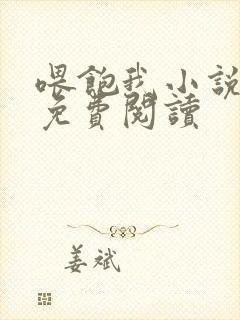 喂飽我小說
免費閱讀
姜斌